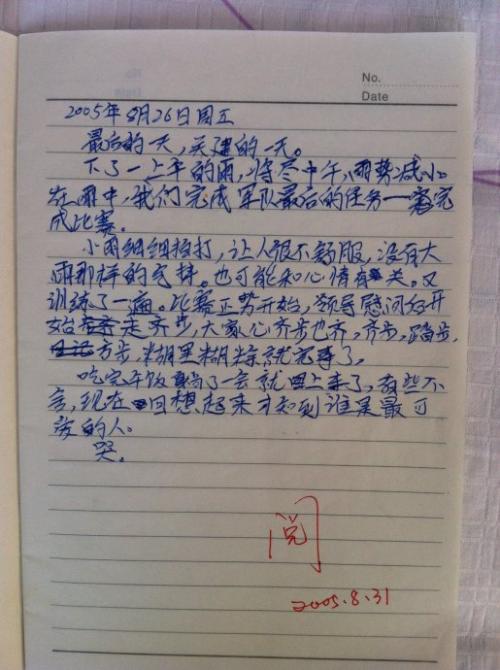 No.
Date
2005年8月26日周五
最后的一天,关键的一天。
下了一上午的雨,将尽中午,雨势减小
在雨中,我们完成军队最后的任务一完
成比赛。
小雨细细拍打,让人很不舒服,没有大
雨那样的豪爽。也可能和心情有关。又
训练了一遍。比赛正势开始,领导慰问后开
始走齐步,大家心齐步也齐,齐步,踏步,
方步,糊里糊涂就完事了。
吃完午饭躺了一会就回上来了,有些不
舍,现在回想起来才知到谁是最可
爱的人。
哭。
阅
2005.8.31